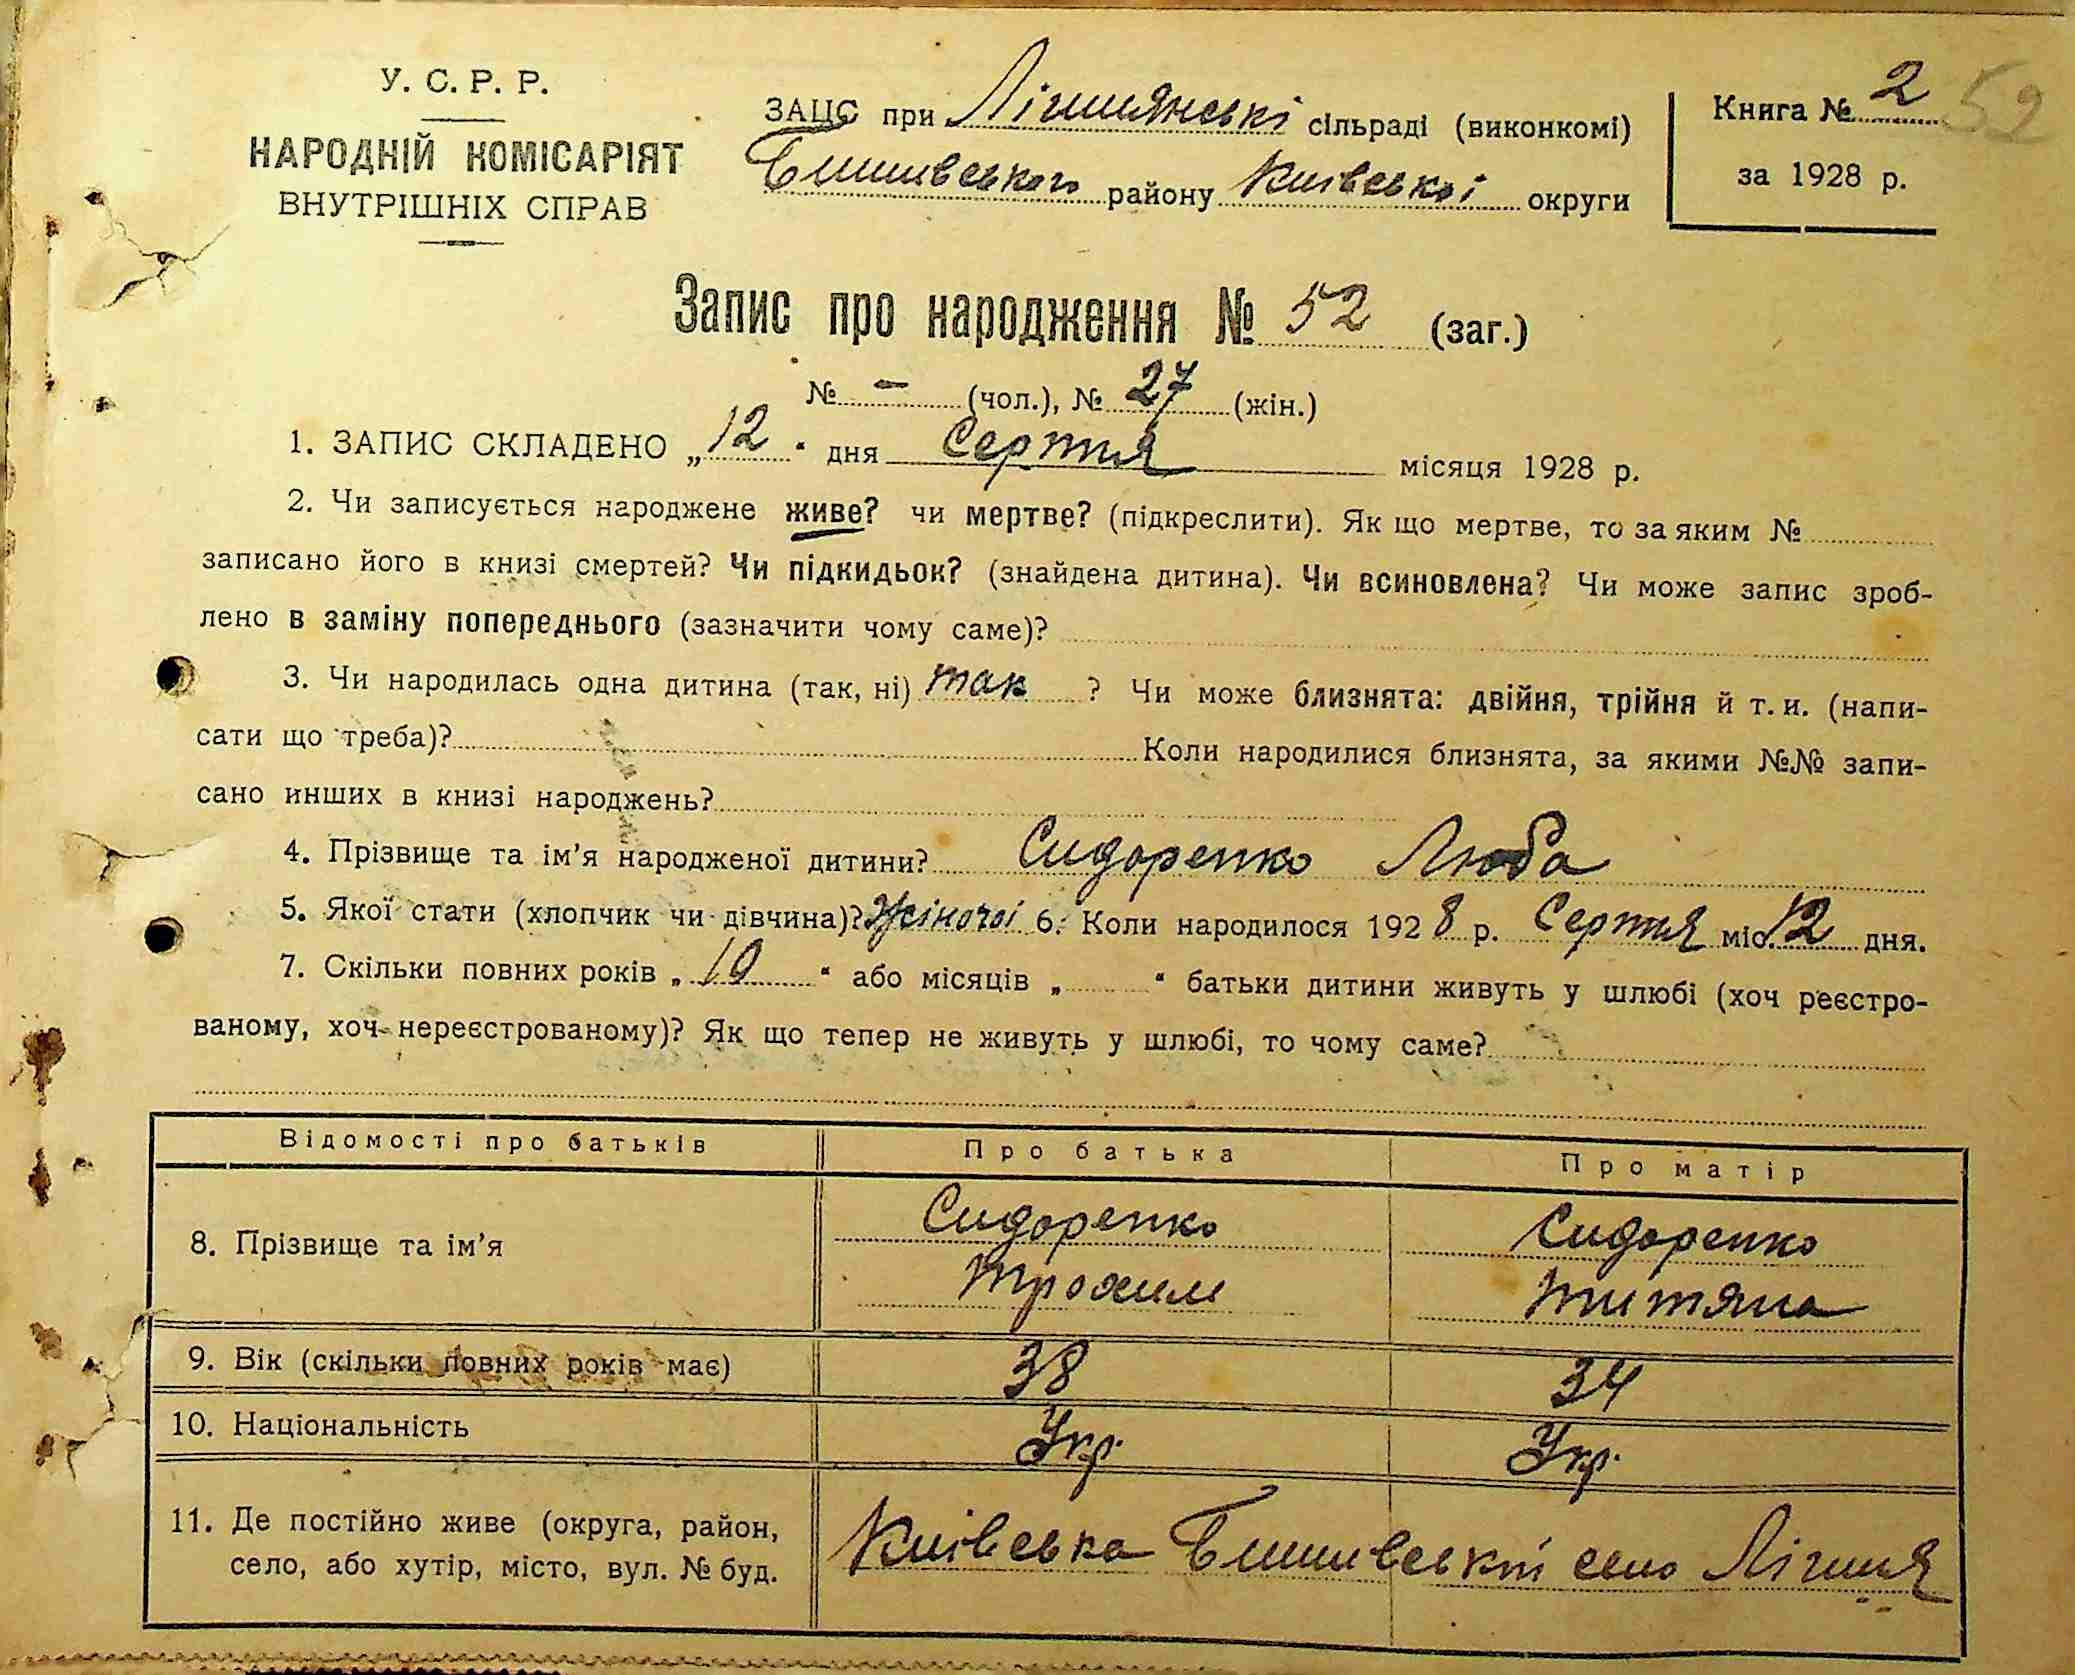 У. С. Р. Р.
НАРОДНІЙ КОМІСАРІЯТ
ВНУТРІШНІХ СПРАВ
ЗАЦС при сільраді (виконкомі)
району Київської округи
Книга № 2 52
за 1928 р.
Запис про народження № 52 (заг.)
№ – (чол.), № 27 (жін.)
1. ЗАПИС СКЛАДЕНО „12“ дня Серпня місяця 1928 р.
2. Чи записується народжене живе? чи мертве? (підкреслити). Як що мертве, то за яким №
записано його в книзі смертей? Чи підкидьок? (знайдена дитина). Чи всиновлена? Чи може запис зроб-
лено в заміну попереднього (зазначити чому саме)?
3. Чи народилась одна дитина (так, ні) так ? Чи може близнята: двійня, трійня й т. и. (напи-
сати що треба)? Коли народилися близнята, за якими №№ запи-
сано инших в книзі народжень?
4. Прізвище та ім’я народженої дитини? Сидоренко Люба
5. Якої стати (хлопчик чи дівчина)? Жіночої 6. Коли народилося 1928 р. Серпня міс. 12 дня.
7. Скільки повних років „10“ або місяців „ “ батьки дитини живуть у шлюбі (хоч реєстро-
ваному, хоч нереєстрованому)? Як що тепер не живуть у шлюбі, то чому саме?
Відомості про батьків Про батька Про матір
8. Прізвище та ім’я Сидоренко Трохим Сидоренко Титяна
9. Вік (скільки повних років має) 38 34
10. Національність Укр. Укр.
11. Де постійно живе (округа, район,
село, або хутір, місто, вул. № буд.
Київська село